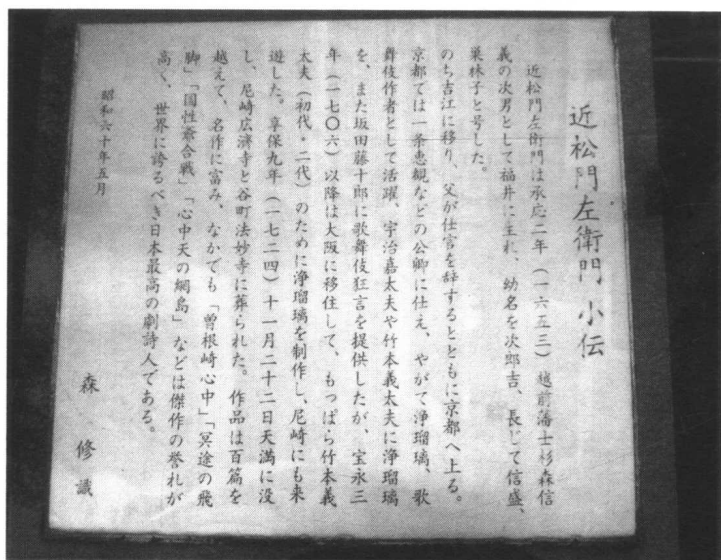 近松門左衛門 小伝
近松門左衛門は承応二年(一六五三)越前藩士杉森信
義の次男として福井に生れ、幼名を次郎吉、長じて信盛、
巣林子と号した。
のち吉江に移り、父が仕官を辞するとともに京都へ上る。
京都では一条恵観などの公卿に仕え、やがて浄瑠璃、歌
舞伎作者として活躍、宇治嘉太夫や竹本義太夫に浄瑠璃
を、また坂田藤十郎に歌舞伎狂言を提供したが、宝永三
年(一七〇六)以降は大阪に移住して、もっぱら竹本義
太夫(初代・二代)のために浄瑠璃を制作し、尼崎にも来
遊した。享保九年(一七二四)十一月二十二日天満に没
し、尼崎広済寺と谷町法妙寺に葬られた。作品は百篇を
越えて、名作に富み、なかでも「曽根崎心中」「冥途の飛
脚」「国性爺合戦」「心中天の網島」などは傑作の誉れが
高く、世界に誇るべき日本最高の劇詩人である。
昭和六十年五月
森 修 識